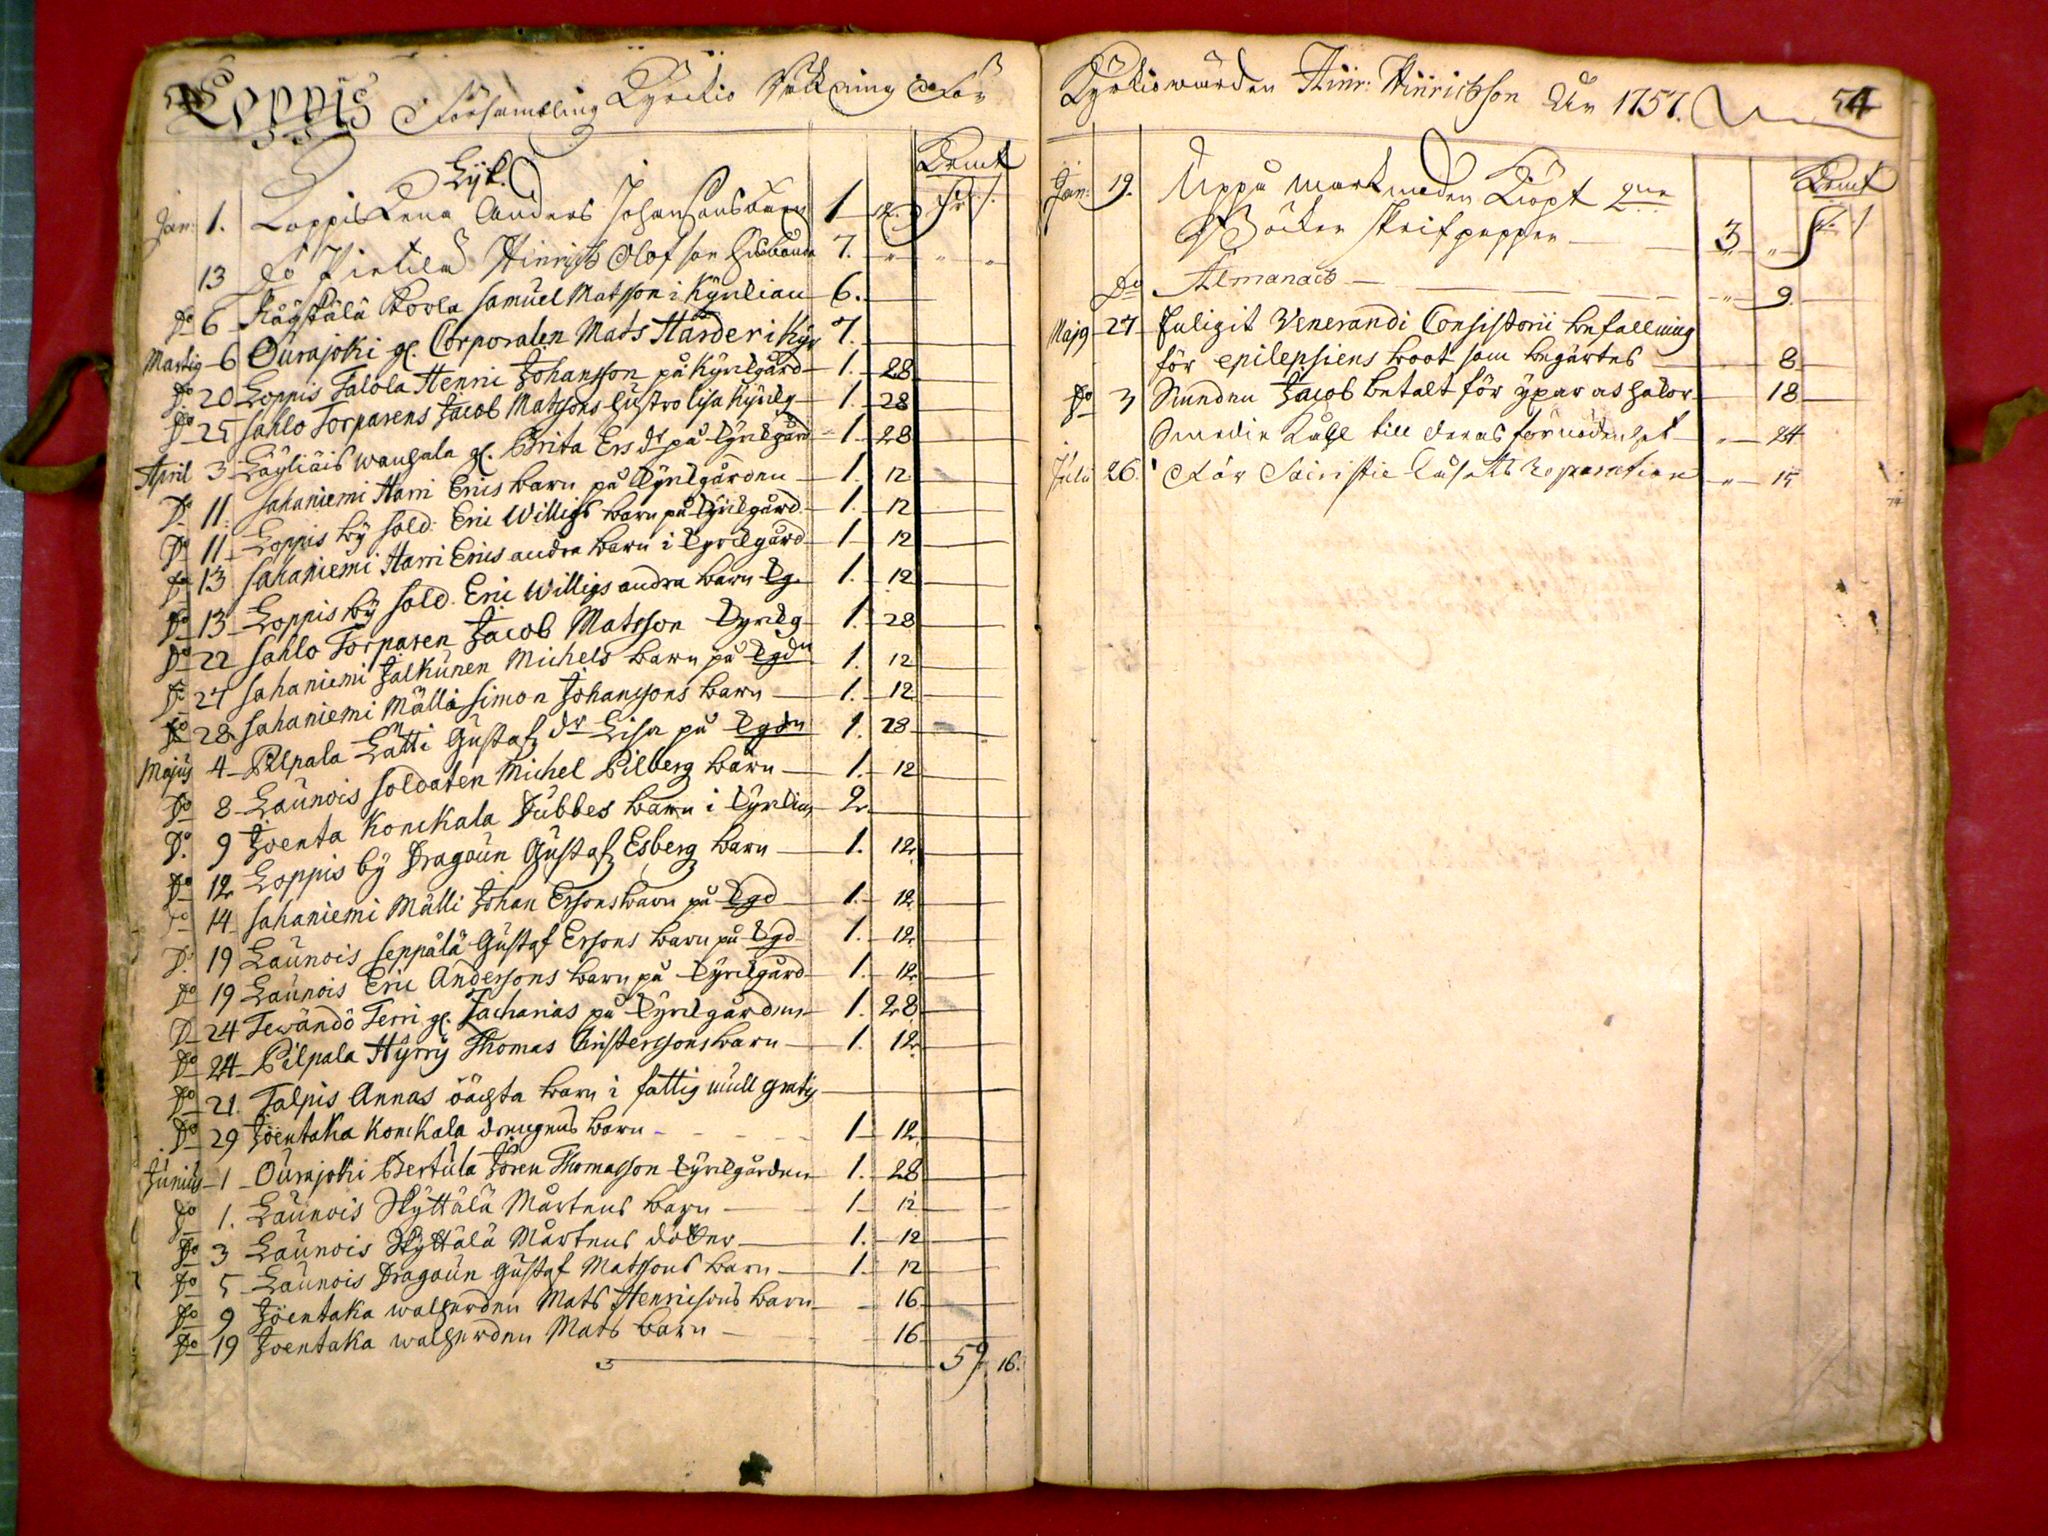 Loppis Försambling Kyrckio Räkning för
Lijk.
Kopmt
Jan: 1. Loppis Anders Johanssons barn 1 12.
13 do Pietilä Hinrich Olofson 7.
Do 6 Räyskälä Samuel Matsson i Kyrckian 6.
Martij 6 Ourajoki gl. Corporalen Mats Harder i Kyr 7.
Do 20 Loppis Talola Henric Johansson på Kyrckgård 1. 28
Do 25 Sahlo Torparens Jacob Matssons hustro Lisa Kyrckg 1. 28
April 3 Läyliäis gl. Brita Ers dr på Kyrckgård 1. 28
Do 11. Sahaniemi Harri Erics barn på Kyrckgården 1. 12
Do 11 Loppis by Sold: Eric Willigs barn på Kyrckgård 1. 12
Do 13 Sahaniemi Harri Erics andra barn i Kyrckgård 1 12
Do 13 Loppis by Sold. Eric Willigs andra barn Kg. 1. 12
Do 22 Sahlo Torparen Jacob Matsson Kyrckg 1. 28
Do 27 Sahaniemi Jalkunen Michels barn på Kgdn 1. 12
Do 28 Sahaniemi Mälli Simon Johanssons barn 1. 12
Majus 4 Pilpala Lätti Gustaf dr Lisa på Kgdn 1. 28
Do 8 Launois Soldaten Michel Pilberg barn 1. 12
Do 9 Joenta Konckala Jubbes barn i Kyrckian 2.
Do 12 Loppis by Dragoun Gustaf Esberg barn 1. 12
Do 14 Sahaniemi Mälli Johan Erssons barn på Kgd 1. 12
Do 19 Launois Seppälä Gustaf Ersons barn på Kgd 1. 12
Do 19 Launois Eric Anderssons barn på Kyrckgård 1. 12
Do 24 Tewändö Terri gl. Zacharias på Kyrckgården 1. 28
Do 24 Pilpala Hyrry Thomas Christerssons barn 1. 12
Do 21. Talpis Annas oächta barn i fattig mull gratis
Do 29 Joentaka Konckala drengens barn 1 12
Junius 1 Ourajoki Pertula Jören Thomasson Kyrckgården 1. 28
Do 1. Launois Kyttälä Mårtens barn 1 12
Do 3 Launois Kyttälä Mårtens dotter 1. 12
Do 5 Launois Dragoun Gustaf Matssons barn 1 12
Do 9 Joentaka Mats Henricsons barn 16
Do 19 Joentaka Mats barn 16
59 16.
Kyrkiowärden Hinr: Hinrichson År 1757. 54
Kopmt
Jan: 19. Uppå marknaden Kiöpt 2ne
Böcker skrifpapper 3 „
Do Almanach „ 9.
Majg 27 Enligit Venerandi Consistorii befallning
för epilepsiens boot som begärtes 8
Do 3 Smeden Jacob betalt för 18
till deras förnödenhet „ 24
Julii 26. För Sacristie Låsets Reparation „ 15